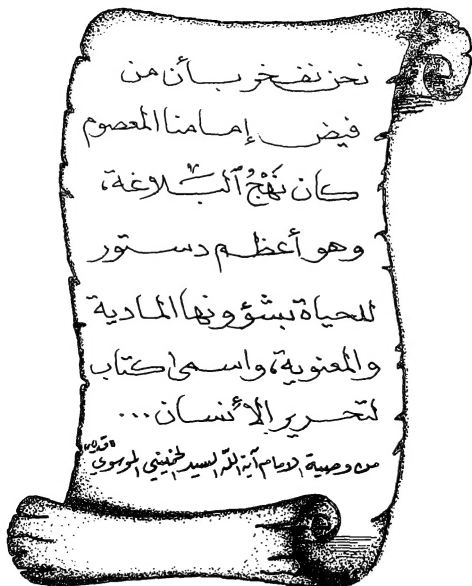 نحن نفخر بأن من
فيض إمامنا المعصوم
كان نَهْجُ ٱلبَلَاغة،
وهو أعظم دستور
للحياة بشؤونها المادية
والمعنوية، واسمى كتاب
لتحرير الأنسان...
من وصية الامام آية الله السيد الخميني الموسوي «قده»